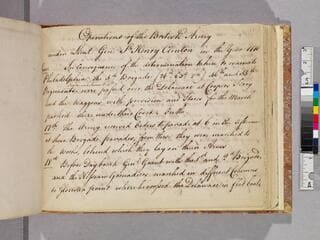 Operations of the British Army
under Lieut. Genl. Sr. Henry Clinton in the Year 1778
In Consequence of the determination taken to evacuate
Philadelphia, the 3d. Brigade, 15th
Regiments were passed over the Delaware at Coopers Ferry
and the Waggons with provision and Stores for the March
parked there under their Cover
17th. The Army received Orders to parade at 6 in the
at their Brigade parades, from thence they were marched to
the works, behind which they lay on their Arms
18th. Before Daybreak Genl. Grant with the 1st and 2d. Brigades
and the Hessian Grenadiers marched in different Columns
to Gloucester point where he crossed the Delaware in flat boats